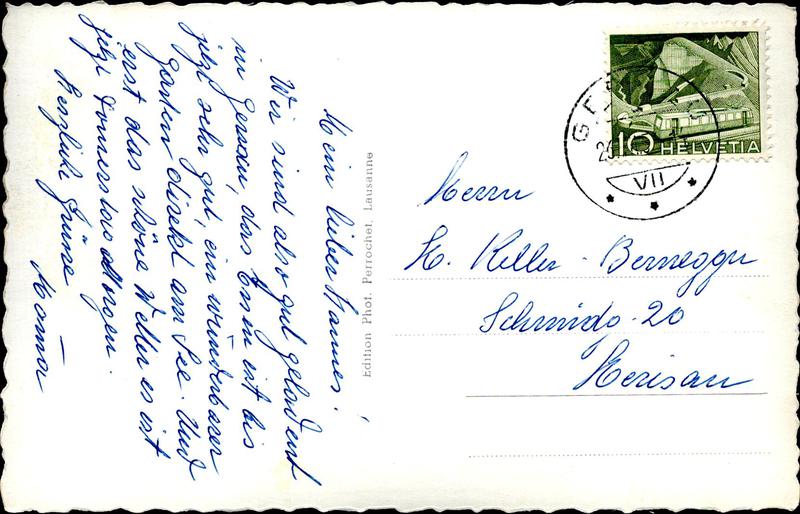 Mein lieber Hannes!
Wir sind also gut gelandent
in Gersau, das Essen ist bis
jetzt sehr gut, ein wunderbarer
Garten direkt am See. Und
erst das schöne Wetter es ist
jetzt Donnerstag Morgen.
Herzliche Grüsse
Mama
Edition Phot. Perrochet, Lausanne
10 HELVETIA
VII
Herrn
H. Keller-Bernegger
Schmidg. 20
Herisau